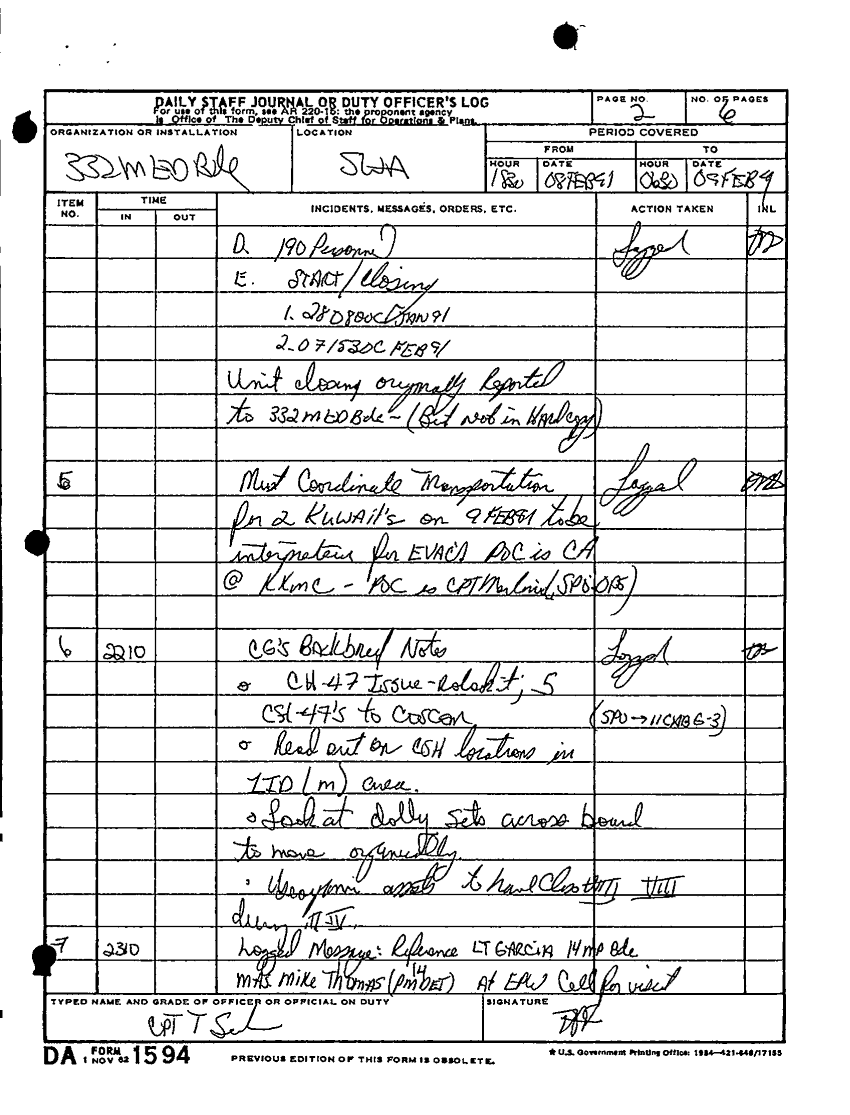 DAILY STAFF JOURNAL OR DUTY OFFICER'S LOG
For use of this form, see AR 220-15; the proponent agency
is Office of The Deputy Chief of Staff for Operations & Plans.
PAGE NO.
2
NO. OF PAGES
6
ORGANIZATION OR INSTALLATION
332 MED Bde
LOCATION
SWA
PERIOD COVERED
FROM
TO
HOUR
DATE
08 FEB 91
HOUR
DATE
09 FEB 9
ITEM NO.
TIME
IN
OUT
INCIDENTS, MESSAGES, ORDERS, ETC.
ACTION TAKEN
INL
D. 190 Personnel
E. START/Closing
1. 28 JAN 91
2. 071530C FEB 91
Unit closing originally Reported
to 332 MED Bde - (But not in Hardcopy)
5
Must Coordinate Transportation
for 2 KUWAIT's on 9 FEB 91 to be
interpreters for EVAC's POC is CA
@ KKMC - POC is CPT (SPO-OPS)
6
2210
CG's Backbrief Notes
o CH-47 Issue - 5
47's to COSCOM
(SPO → G-3)
o Read out on CSH locations in
1ID (M) area.
o Look at dolly sets across board
to move organically.
assets to haul Class III VIII
7
2310
Logged Message: Reference LT GARCIA 14 MP Bde
Mike Thomas (PM DET) At EPW Cell for visit
TYPED NAME AND GRADE OF OFFICER OR OFFICIAL ON DUTY
CPT T
SIGNATURE
DA FORM 1 NOV 62 1594
PREVIOUS EDITION OF THIS FORM IS OBSOLETE.
★ U.S. Government Printing Office: 1984—421-646/17155